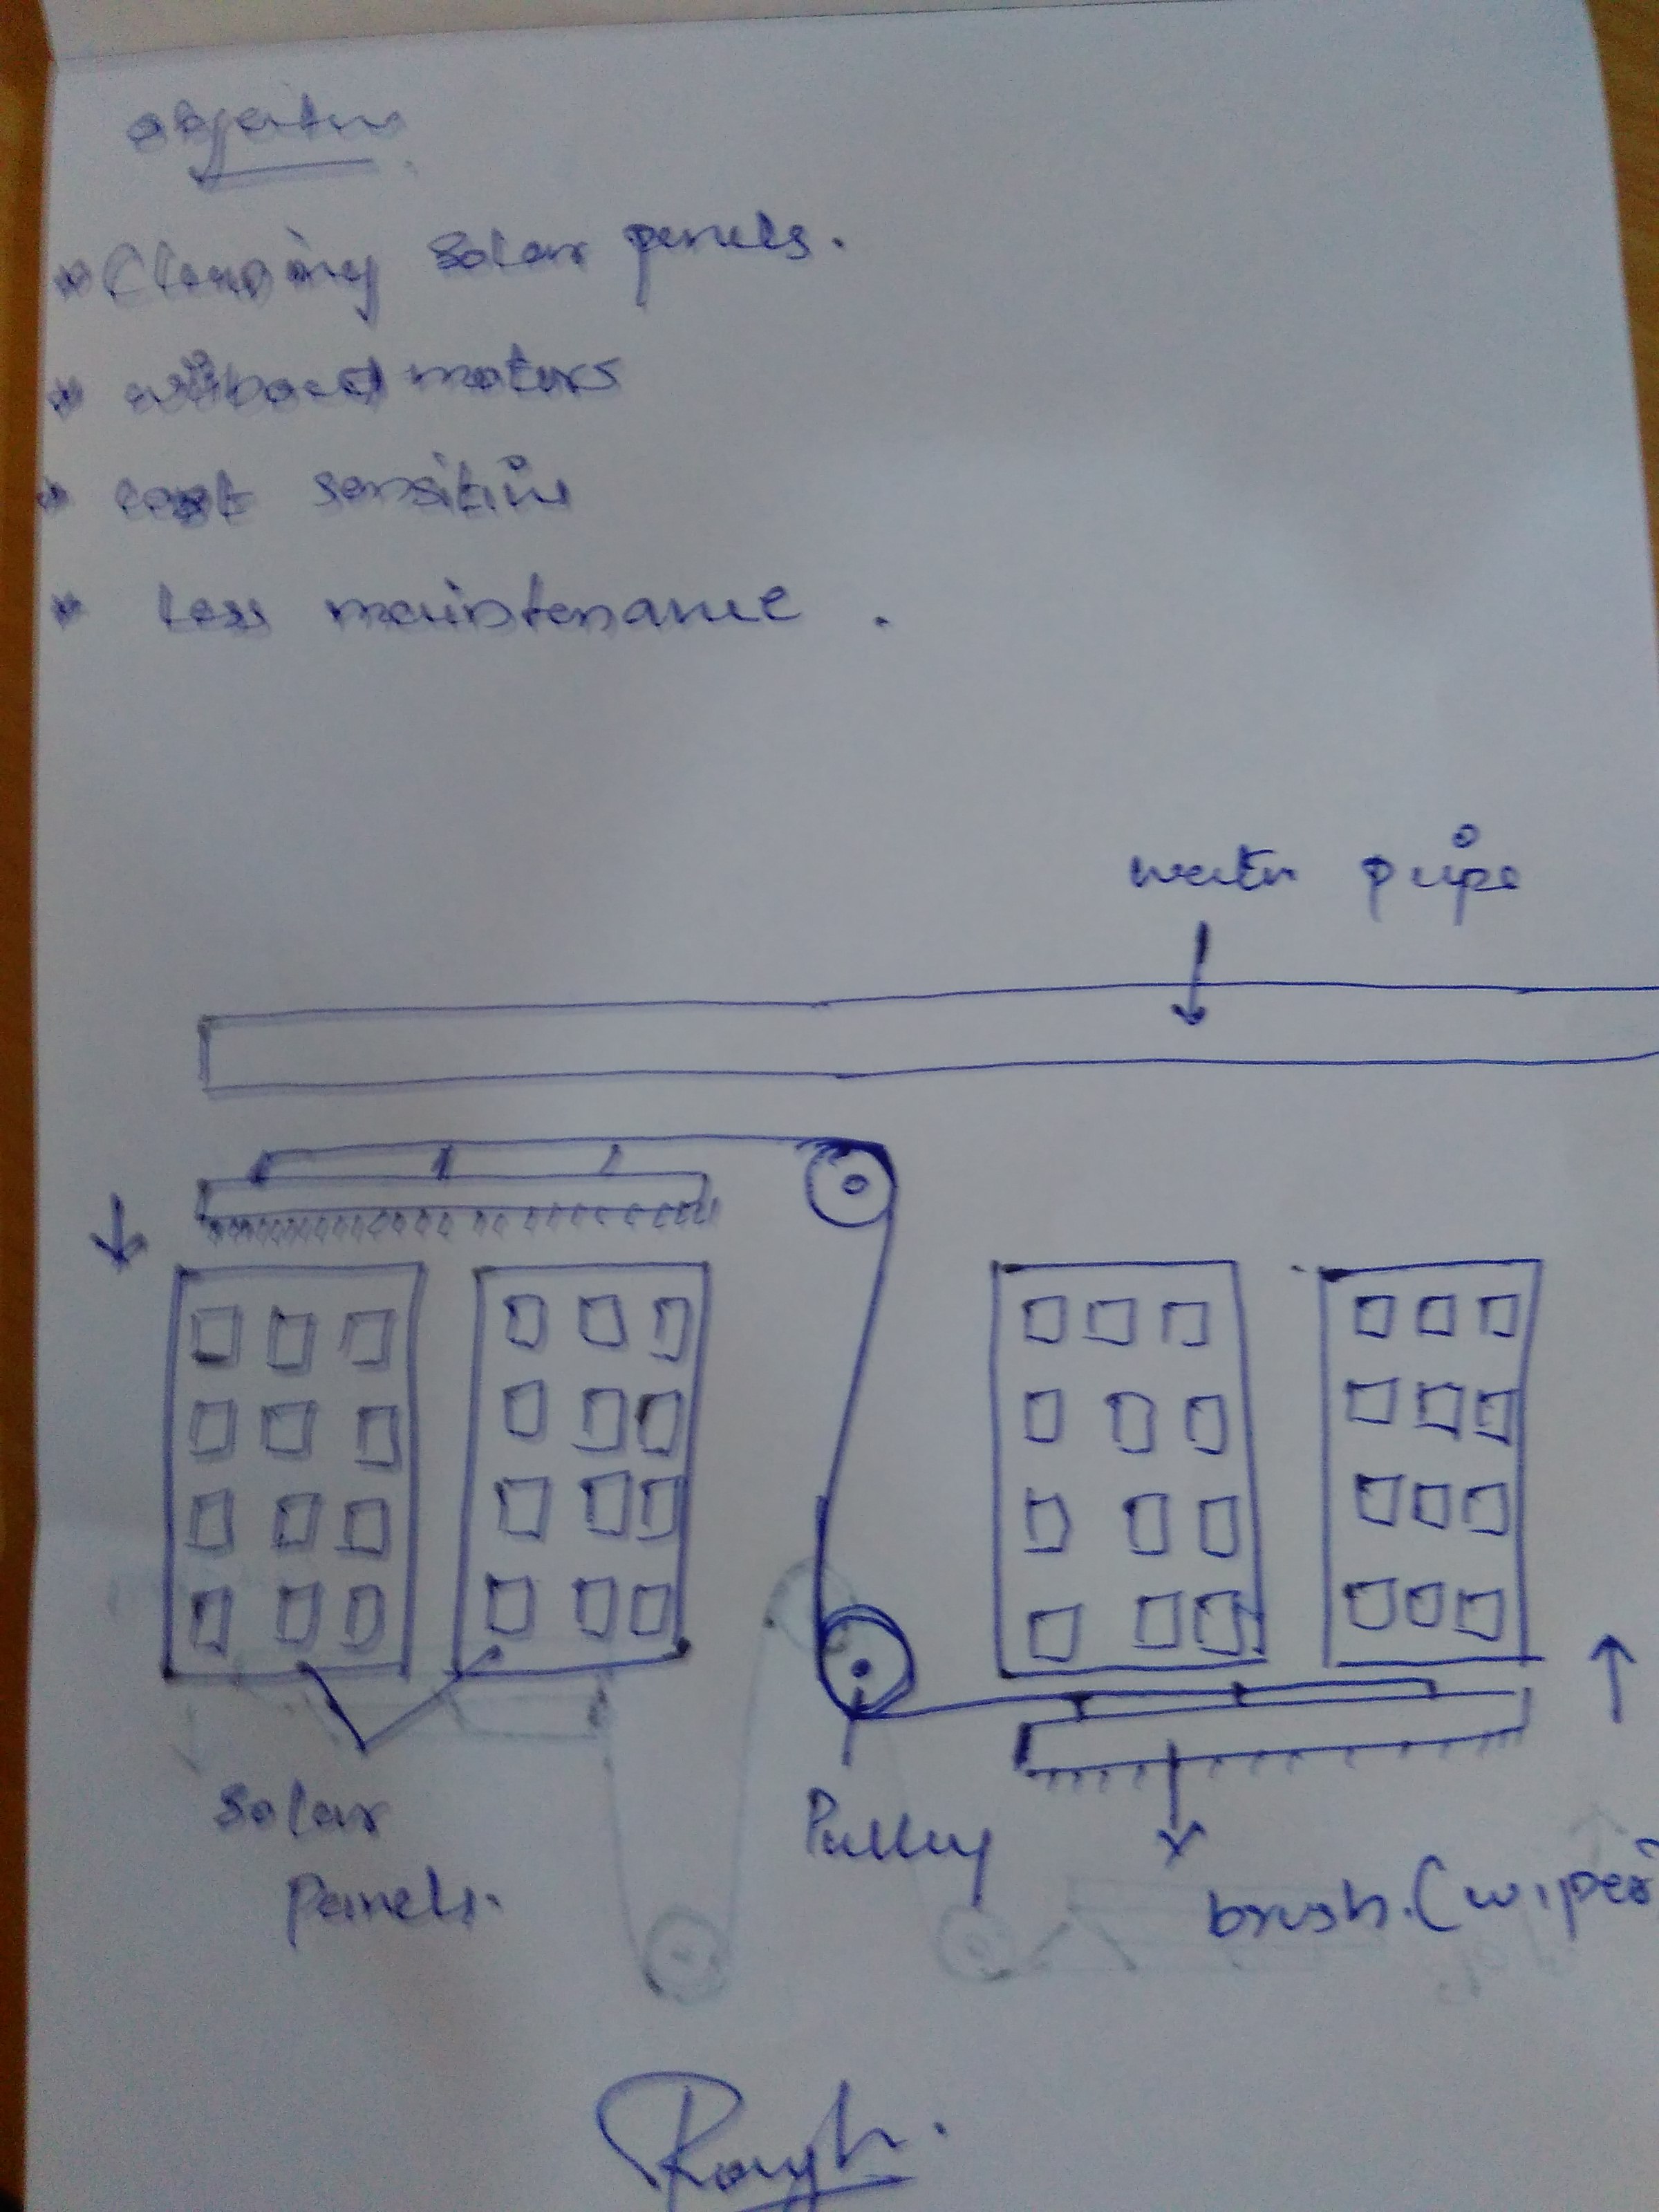 objective
* Cleaning solar panels.
* without motors
* cost sensitive
* Less maintenance .
water pipe
solar
panels.
Pulley
brush. (wiper)
Rough.